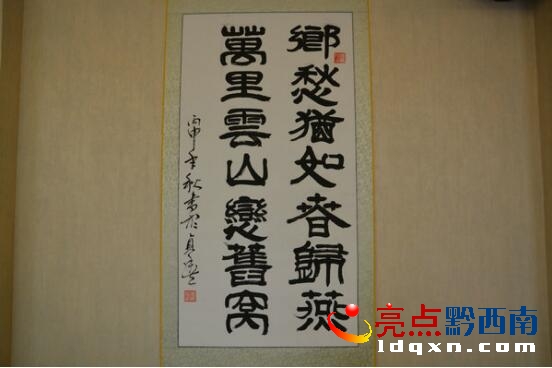 鄉愁猶如春歸燕
萬里雲山戀舊窩
丙申年秋書於貞豐
亮点黔西南
ldqxn.com